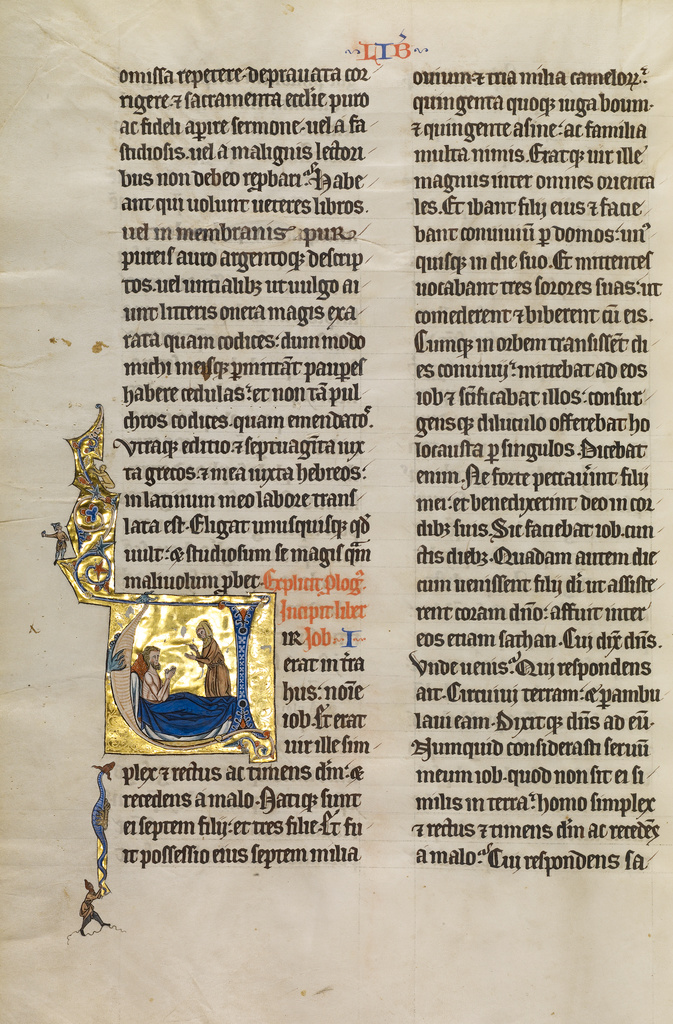 LIB
omissa repetere. deprauata cor
rigere ⁊ sacramenta ecclie puro
ac fideli apire sermone. uel a fa
stidiosis. uel a malignis lectori
bus non debeo repbari. Habe
ant qui uolunt ueteres libros.
uel in membranis pur
pureis auro argentoqꝫ descrip
tos. uel uncialibꝫ ut uulgo ai
unt litteris onera magis exa
rata quam codices: dum modo
michi meisqꝫ pmittāt paupes
habere cedulas: et non tā pul
chros codices. quam emendatos.
Vtraqꝫ editio ⁊ septuagīta iux
ta grecos. ⁊ mea iuxta hebreos:
in latinum meo labore trans
lata est. Eligat unusquisqꝫ qd
uult: & studiosum se magis qm
maliuolum pbet. Explicit plog.
Incipit liber
IR Job. I
erat in tra
hus: noīe
iob. Et erat
uir ille sim
plex ⁊ rectus ac timens dm: &
recedens a malo. Natiqꝫ sunt
ei septem filij: et tres filie. Et fu
it possessio eius septem milia
ouium ⁊ tria milia camelorꝝ:
quingenta quoqꝫ iuga boum.
⁊ quingente asine: ac familia
multa nimis. Eratqꝫ uir ille
magnus inter omnes orienta
les. Et ibant filij eius ⁊ facie
bant conuiuiū p domos: un
quisqꝫ in die suo. Et mittentes
uocabant tres sorores suas: ut
comederent ⁊ biberent cū eis.
Cumqꝫ in orbem transissēt di
es conuiuij: mittebat ad eos
iob ⁊ scīficabat illos: consur
gensqꝫ diluculo offerebat ho
locausta p singulos. Dicebat
enim. Ne forte peccauint filij
mei: et benedixerint deo in cor
dibꝫ suis. Sic faciebat iob. cun
ctis diebꝫ. Quadam autem die
cum uenissent filij di ut assiste
rent coram dno: affuit inter
eos etiam sathan. Cui dix dns.
Vnde uenis. Qui respondens
ait. Circuiui terram: & pambu
laui eam. Dixitqꝫ dns ad eū.
Numquid considerasti seruū
meum iob. quod non sit ei si
milis in terra: homo simplex
⁊ rectus ⁊ timens dm ac recedēs
a malo. Cui respondens sa